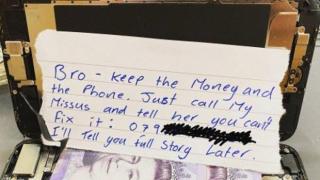 Bro - keep the Money and
the Phone. Just call My
Missus and tell her you can't
Fix it: 079
I'll Tell you full Story Later.